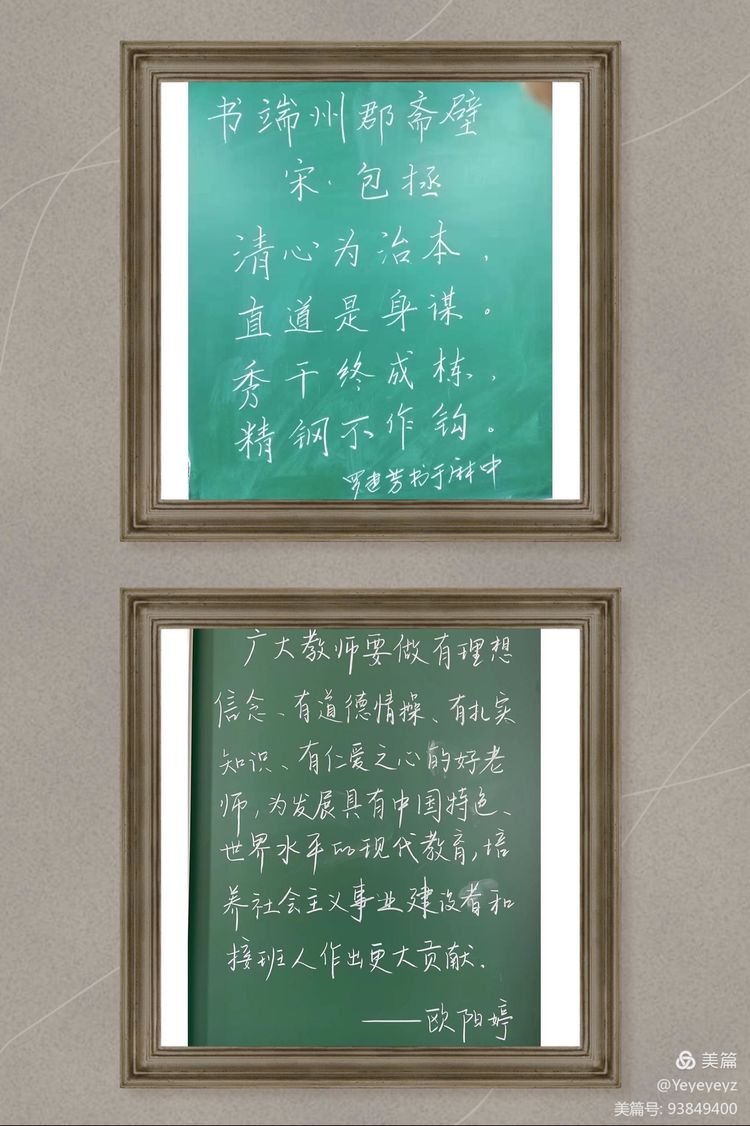 书端州郡斋壁
宋·包拯
清心为治本,
直道是身谋。
秀干终成栋,
精钢不作钩。
罗建芳书于麻中
广大教师要做有理想
信念、有道德情操、有扎实
知识、有仁爱之心的好老
师,为发展具有中国特色、
世界水平的现代教育,培
养社会主义事业建设者和
接班人作出更大贡献.
——欧阳婷
美篇
@Yeyeyeyz
美篇号: 93849400